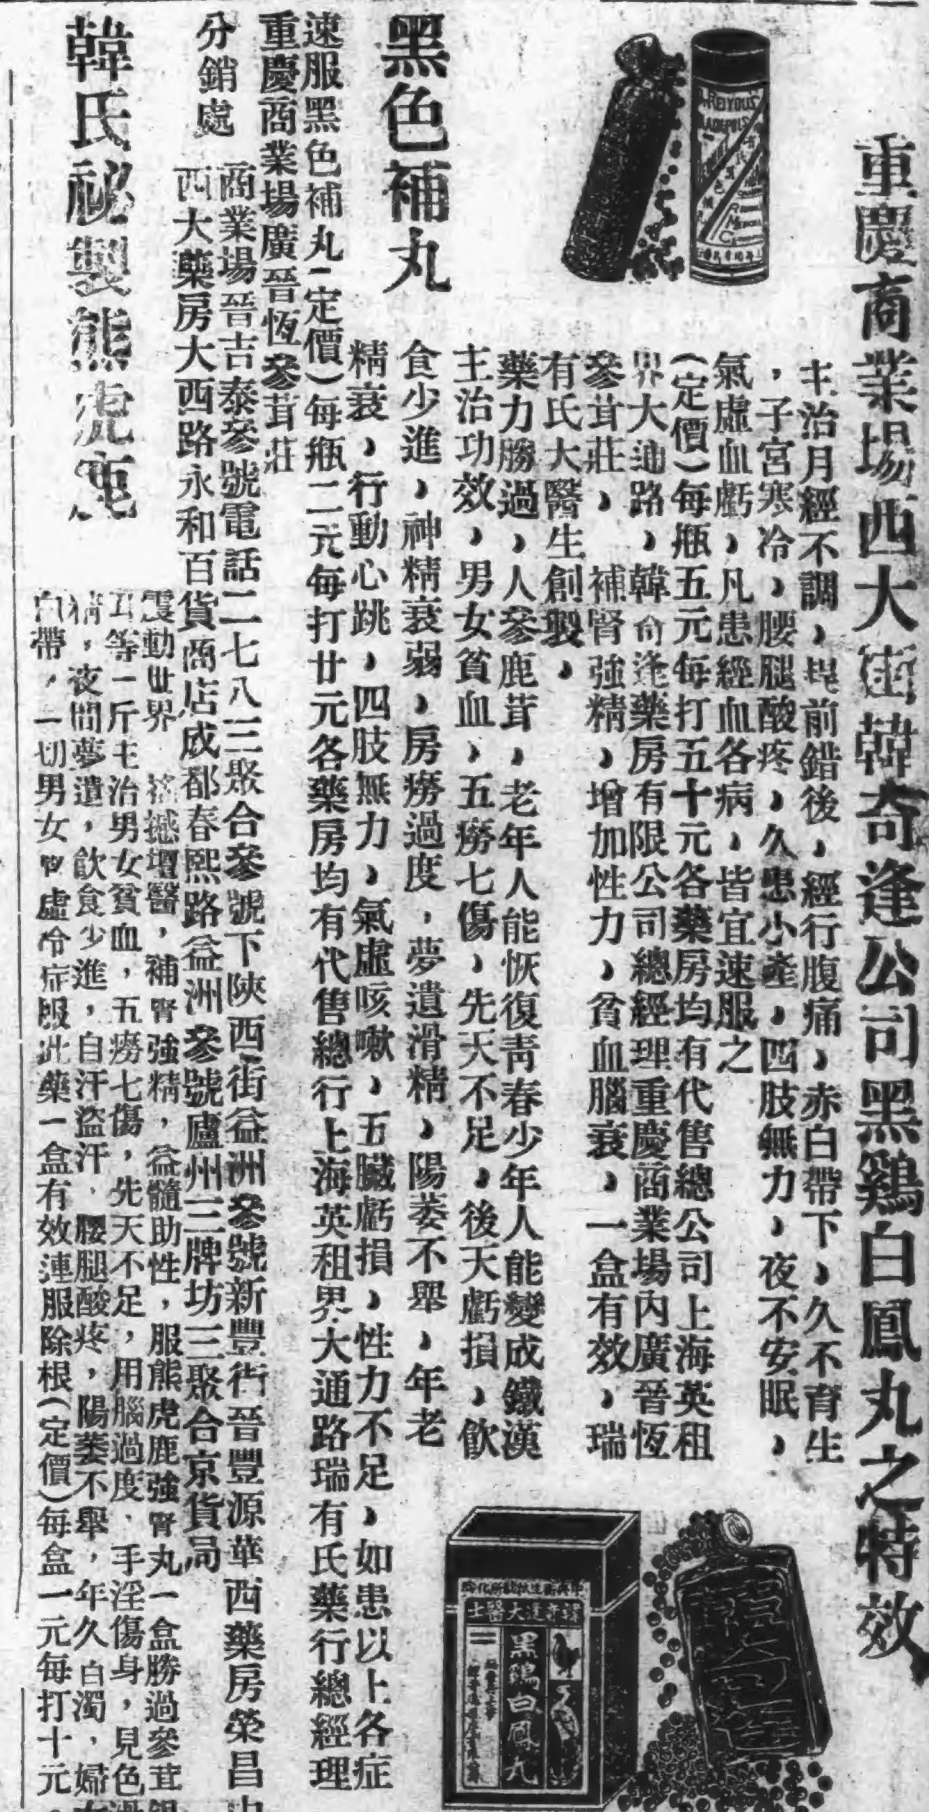 重慶商業場西大街韓奇逢公司黑鷄白鳳丸之特效
主治月經不調，趕前錯後，經行腹痛，赤白帶下，久不育生
，子宮寒冷，腰腿酸疼，久患小產，四肢無力，夜不安眠，
氣虛血虧，凡患經血各病，皆宜速服之
(定價)每瓶五元每打五十元各藥房均有代售總公司上海英租
界大通路，韓奇逢藥房有限公司總經理重慶商業場內廣晉恆
參茸莊，補腎強精，增加性力，貧血腦衰，一盒有效，瑞
有氏大醫生創製，
藥力勝過，人參鹿茸，老年人能恢復靑春少年人能變成鐵漢
主治功效，男女貧血，五癆七傷，先天不足，後天虧損，飲
食少進，神精衰弱，房癆過度，夢遺滑精，陽萎不舉，年老
精衰，行動心跳，四肢無力，氣虛咳嗽，五臟虧損，性力不足，如患以上各症
黑色補丸
速服黑色補丸(定價)每瓶二元每打廿元各藥房均有代售總行上海英租界大通路瑞有氏藥行總經理
重慶商業場廣晉恆參茸莊
分銷處
商業場晉吉泰參號電話二七八三聚合參號下陝西街益洲參號新豐街晉豐源華西藥房榮昌
西大藥房大西路永和百貨商店成都春熙路益洲參號廬州三牌坊三聚合京貨局
韓氏祕製熊虎鹿
震動世界 搖撼壇醫，補腎強精，益髓助性，服熊虎鹿強腎丸一盒勝過參茸
等一斤主治男女貧血，五癆七傷，先天不足，用腦過度，手淫傷身，見色
精，夜間夢遺，飲食少進，自汗盜汗，腰腿酸疼，陽萎不舉，年久白濁，婦
白帶，一切男女虛冷症服此藥一盒有效連服除根(定價)每盒一元每打十元
韓奇逢大醫士
黑鷄白鳳丸